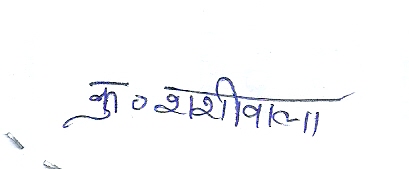 कु० शशीवाला